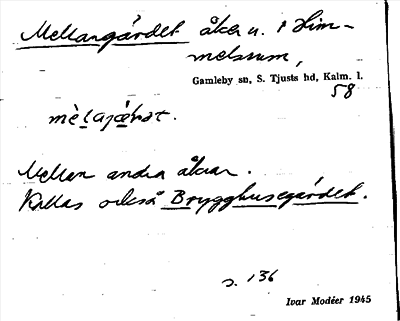 Mellangärdet åker u. t Him-
melsrum,
Gamleby sn, S. Tjusts hd, Kalm. l.
58
Mellan andra åkrar.
Kallas också Brygghusegärdet.
s. 136
Ivar Modéer 1945